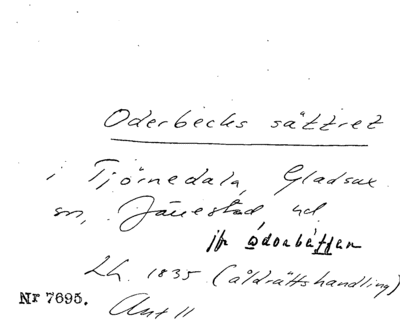 Oderbecks sättret
i Tjörnedala, Gladsax
sn, Järrestad, hd.
jfr
Lh. 1835 (åldrättshandling)
Nr 7695.
Ant II